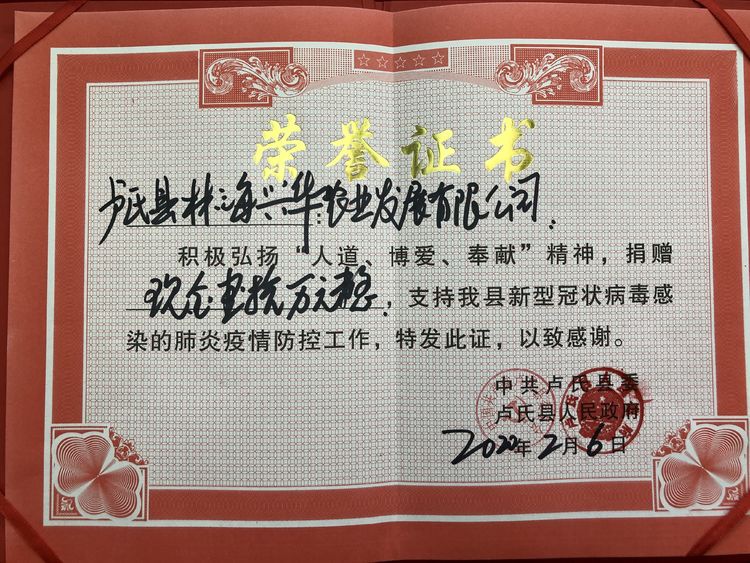 荣誉证书
卢氏县林海兴华农业发展有限公司:
积极弘扬“人道、博爱、奉献”精神，捐赠
现金壹拾万元整，支持我县新型冠状病毒感
染的肺炎疫情防控工作，特发此证，以致感谢。
中共卢氏县委
卢氏县人民政府
2020年2月6日